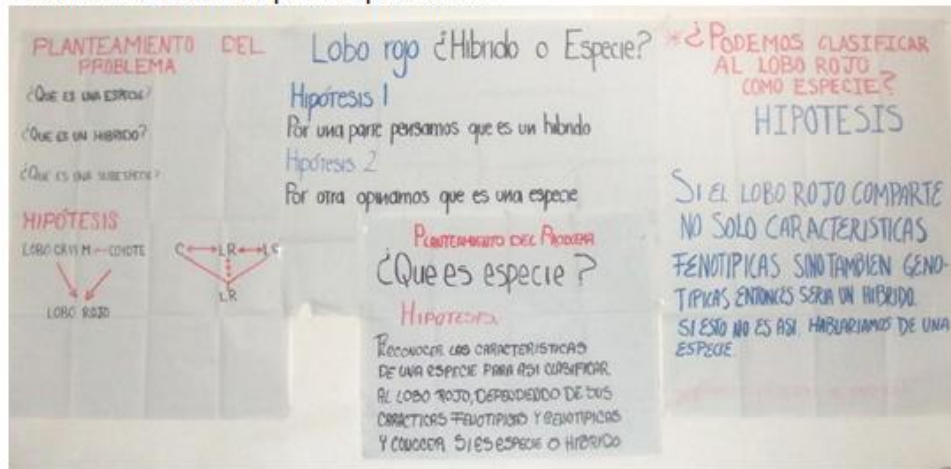 PLANTEAMIENTO DEL
PROBLEMA
¿QUE ES UNA ESPECIE?
¿QUE ES UN HIBRIDO?
¿QUE ES UNA SUBESPECIE?
HIPÓTESIS
LOBO GRIS M COYOTE
LOBO ROJO
C LR LG
LR
Lobo rojo ¿Hibrido o Especie?
Hipótesis 1
Por una parte pensamos que es un hibrido
Hipótesis 2
Por otra opinamos que es una especie
PLANTEAMIENTO DEL PROBLEMA
¿Que es especie?
HIPOTESIS
RECONOCER LAS CARACTERISTICAS
DE UNA ESPECIE PARA ASI CLASIFICAR
AL LOBO ROJO, DEPENDIENDO DE SUS
CARACTICAS FENOTIPICAS Y GENOTIPICAS
Y CONOCER SI ES ESPECIE O HIBRIDO
*¿PODEMOS CLASIFICAR
AL LOBO ROJO
COMO ESPECIE?
HIPOTESIS
SI EL LOBO ROJO COMPARTE
NO SOLO CARACTERISTICAS
FENOTIPICAS SINO TAMBIEN GENO-
TIPICAS ENTONCES SERIA UN HIBRIDO.
SI ESTO NO ES ASI, HABLARIAMOS DE UNA
ESPECIE.